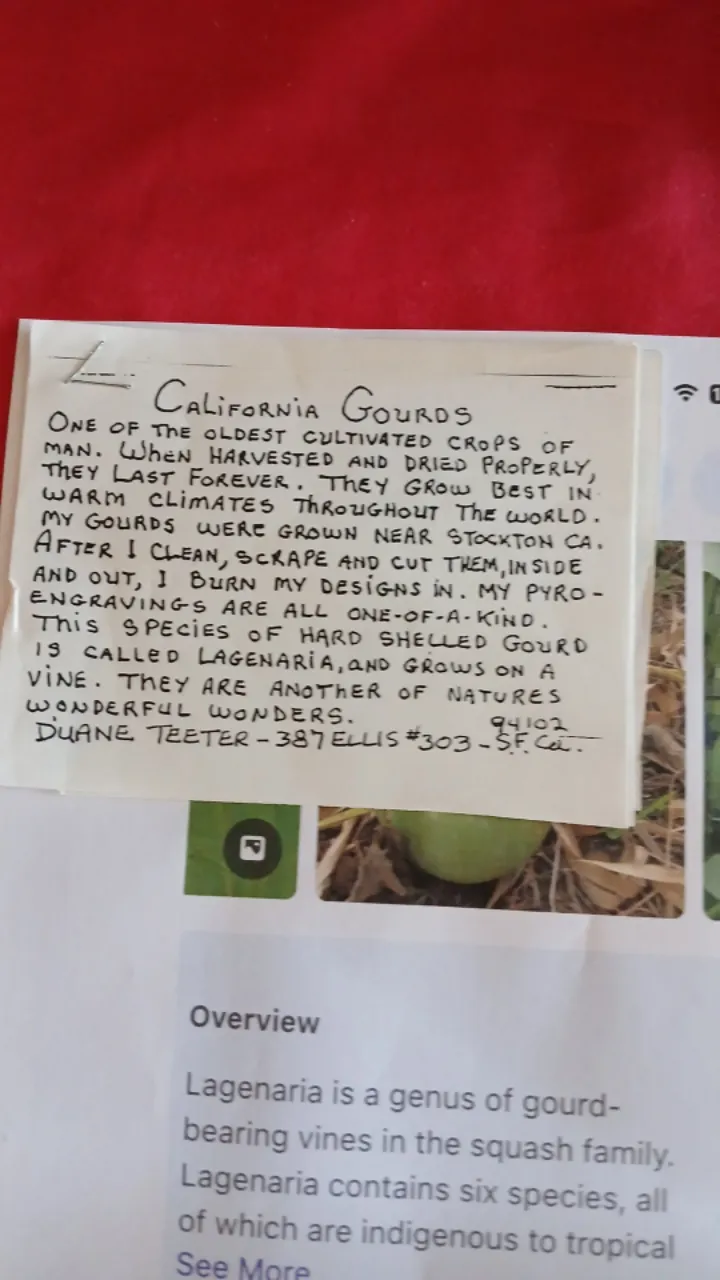 CALIFORNIA GOURDS
ONE OF THE OLDEST CULTIVATED CROPS OF
MAN. WHEN HARVESTED AND DRIED PROPERLY,
THEY LAST FOREVER. THEY GROW BEST IN
WARM CLIMATES THROUGHOUT THE WORLD.
MY GOURDS WERE GROWN NEAR STOCKTON CA.
AFTER I CLEAN, SCRAPE AND CUT THEM, INSIDE
AND OUT, I BURN MY DESIGNS IN. MY PYRO-
ENGRAVINGS ARE ALL ONE-OF-A-KIND.
THIS SPECIES OF HARD SHELLED GOURD
IS CALLED LAGENARIA, AND GROWS ON A
VINE. THEY ARE ANOTHER OF NATURES
WONDERFUL WONDERS.
94102
DUANE TEETER - 387 ELLIS #303 - S.F. Ca.
Overview
Lagenaria is a genus of gourd-
bearing vines in the squash family.
Lagenaria contains six species, all
of which are indigenous to tropical
See More